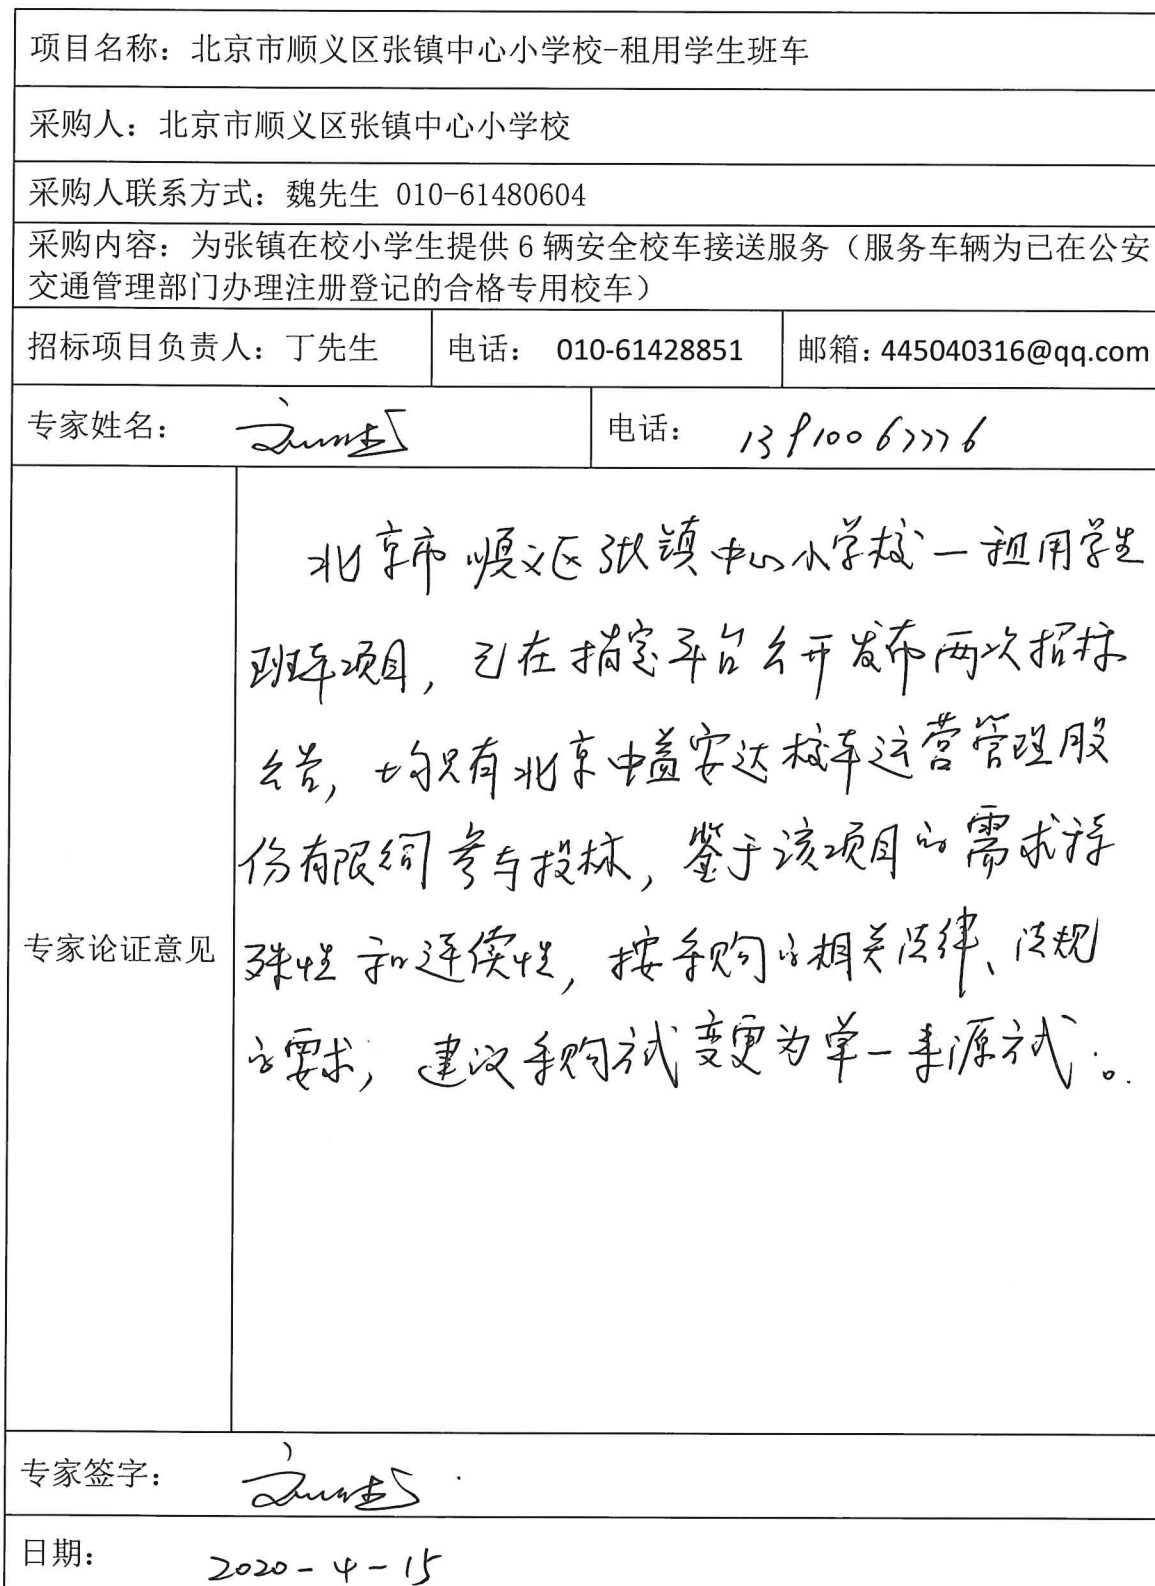 项目名称：北京市顺义区张镇中心小学校-租用学生班车
采购人：北京市顺义区张镇中心小学校
采购人联系方式：魏先生 010-61480604
采购内容：为张镇在校小学生提供 6 辆安全校车接送服务（服务车辆为已在公安
交通管理部门办理注册登记的合格专用校车）
招标项目负责人：丁先生 电话： 010-61428851 邮箱：445040316@qq.com
专家姓名： 电话：
北京市顺义区张镇中心小学校一租用学生
班车项目，已在指定平台公开发布两次招标
公告，均只有北京中益安达校车运营管理股
份有限公司参与投标，鉴于该项目的需求特
专家论证意见 殊性和连续性，按采购的相关法律、法规
的要求，建议采购方式变更为单一来源方式。
专家签字：
日期： 2020-4-15